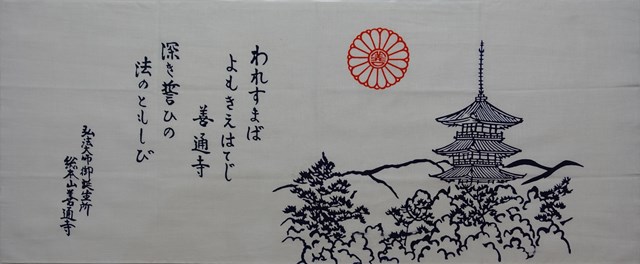 われすまば
よもきえはてじ
善通寺
深き誓ひの
法のともしび
弘法大師御誕生所
総本山善通寺